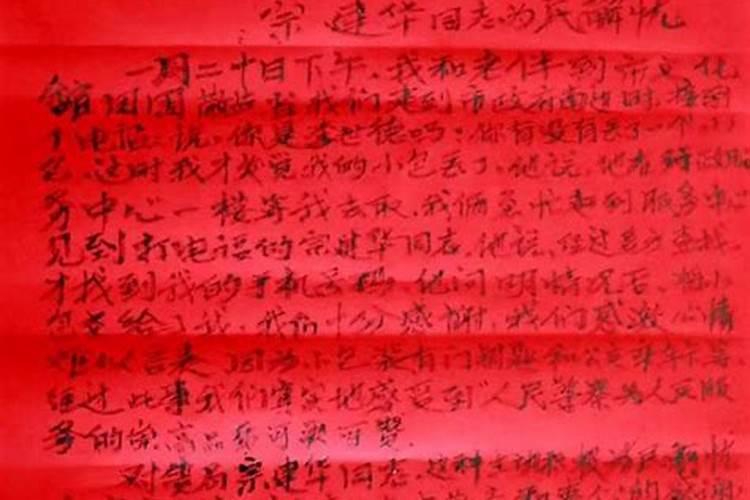 宗建华同志为民解忧
一月二十日下午,我和老伴到市文化
馆 我们走到市政府南边时,接到
个电话说,你是李世德吗?你有没有丢了一个小
包,这时我才发觉我的小包丢了,他说,他在行政服
务中心一楼等我去取,我俩急忙赶到服务中心
见到打电话的宗建华同志,他说,经过多方查找,
才找到我的手机号码,他问明情况后,把小
包交给了我,我们十分感谢,我们感激心情
难以言表,因为小包装有门钥匙和公交车卡等
经过此事我们真实地感受到“人民警察为人民服
务的崇高品 可歌可
对 局宗建华同志,这种 为民解忧